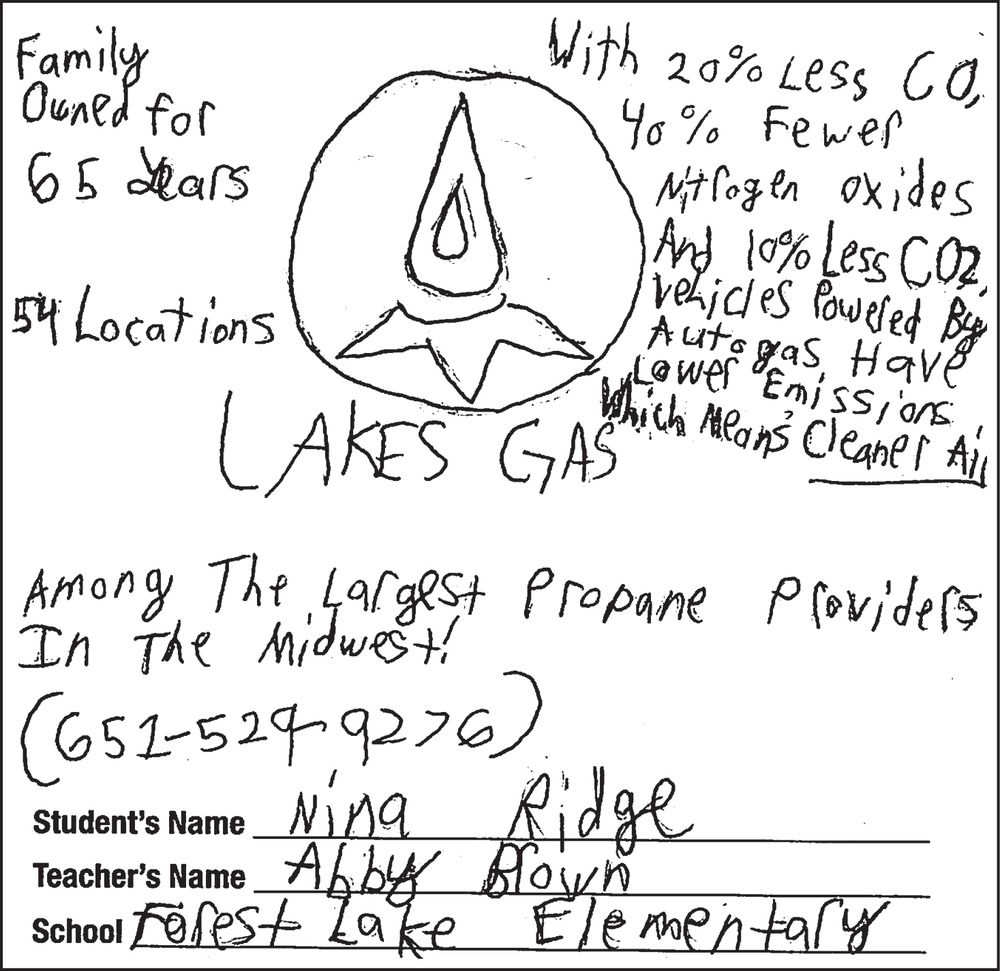 Family
Owned for
65 Years
54 Locations
With 20% Less CO,
40% Fewer
Nitrogen oxides
And 10% Less CO2,
Vehicles Powered By
Autogas Have
Lower Emissions
Which Means Cleaner Air
LAKES GAS
Among The Largest Propane Providers
In The Midwest!
(651-529-9276)
Student's Name Nina Ridge
Teacher's Name Abby Brown
School Forest Lake Elementary